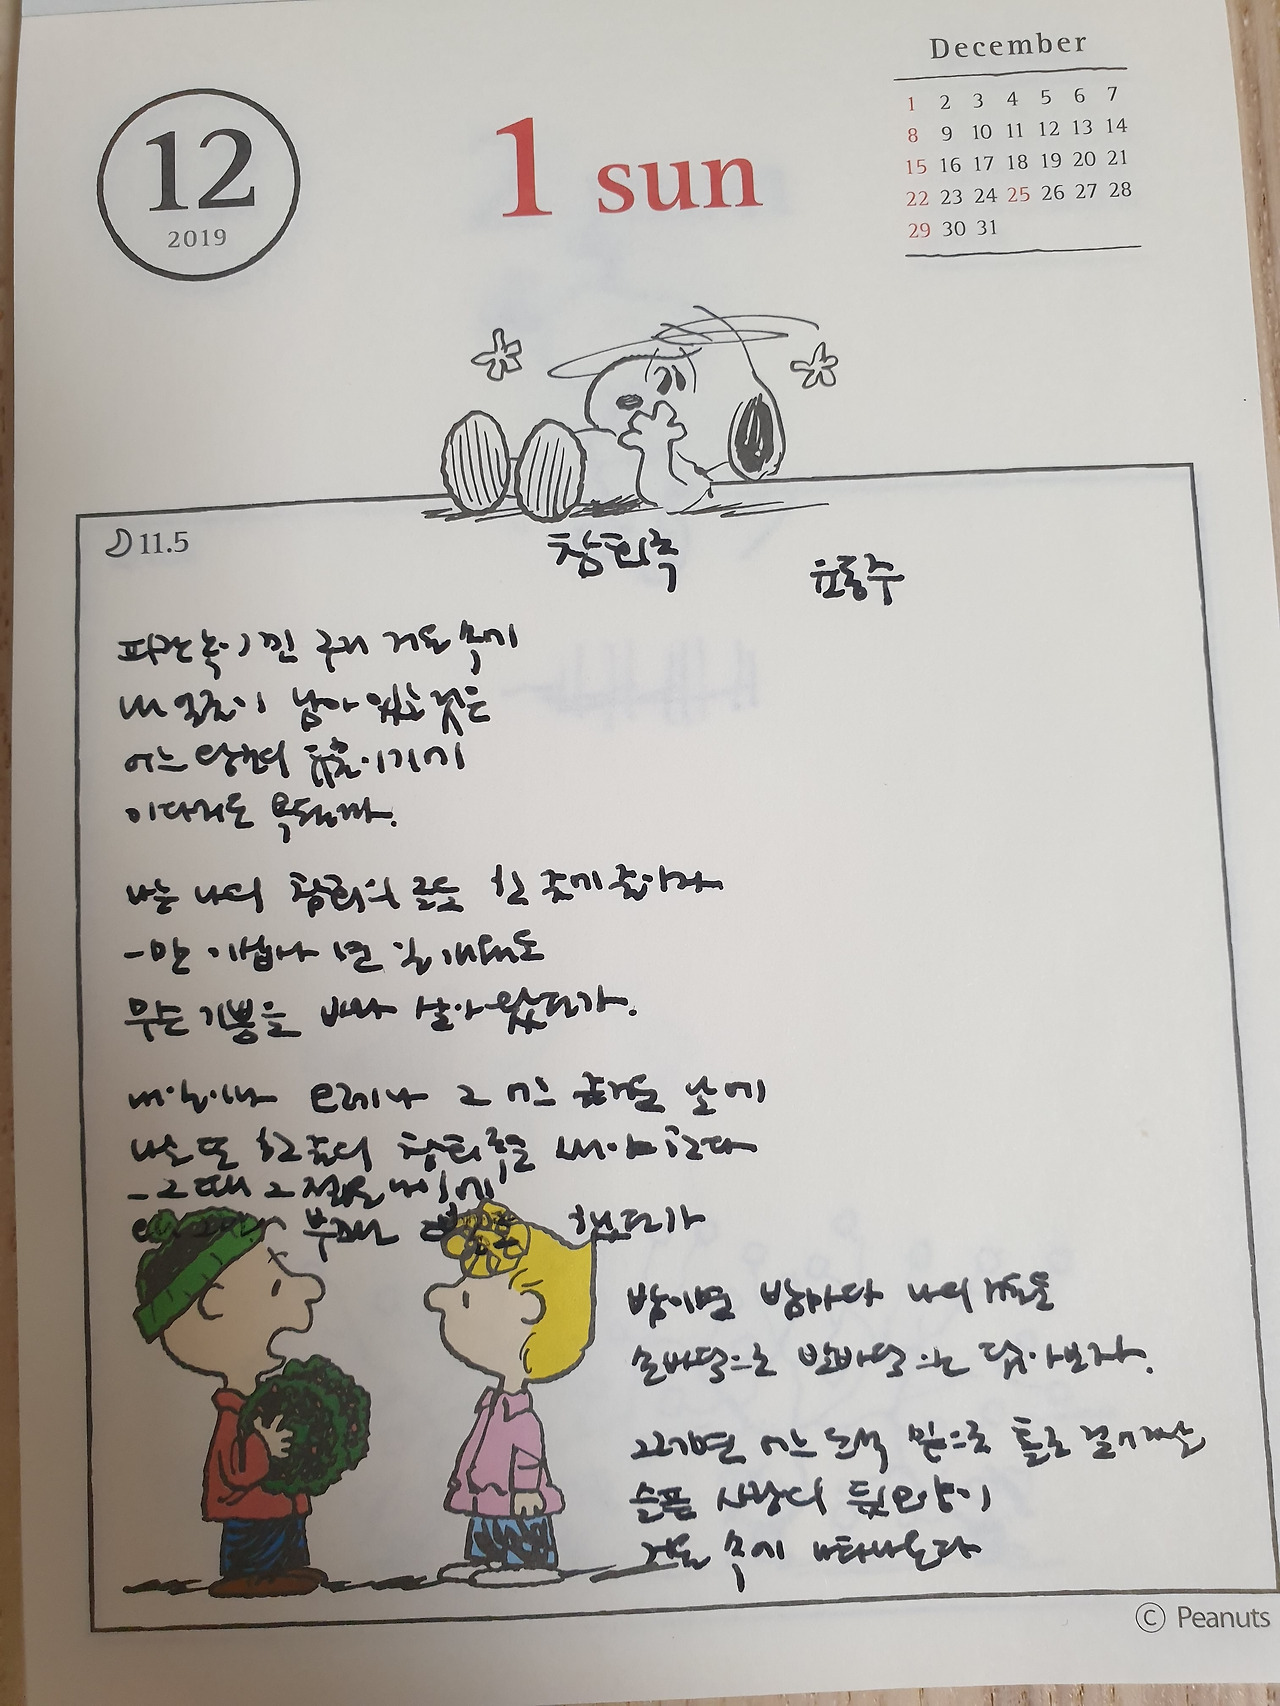 December
12
2019
1 sun
1 2 3 4 5 6 7
8 9 10 11 12 13 14
15 16 17 18 19 20 21
22 23 24 25 26 27 28
29 30 31
11.5
참회록
윤동주
파란 녹이 낀 구리 거울 속에
내 얼굴이 남아 있는 것은
어느 왕조의 유물이기에
이다지도 욕될까.
나는 나의 참회의 글을 한 줄에 줄이자
-만 이십사 년 일 개월을
무슨 기쁨을 바라 살아 왔던가.
내일이나 모레나 그 어느 즐거운 날에
나는 또 한 줄의 참회록을 써야 한다
-그 때 그 젊은 나이에
부끄런 했던가
밤이면 밤마다 나의 거울을
손바닥으로 발바닥으로 닦아보자.
그러면 어느 운석 밑으로 홀로 걸어가는
슬픈 사람의 뒷모양이
거울 속에 나타나온다
© Peanuts